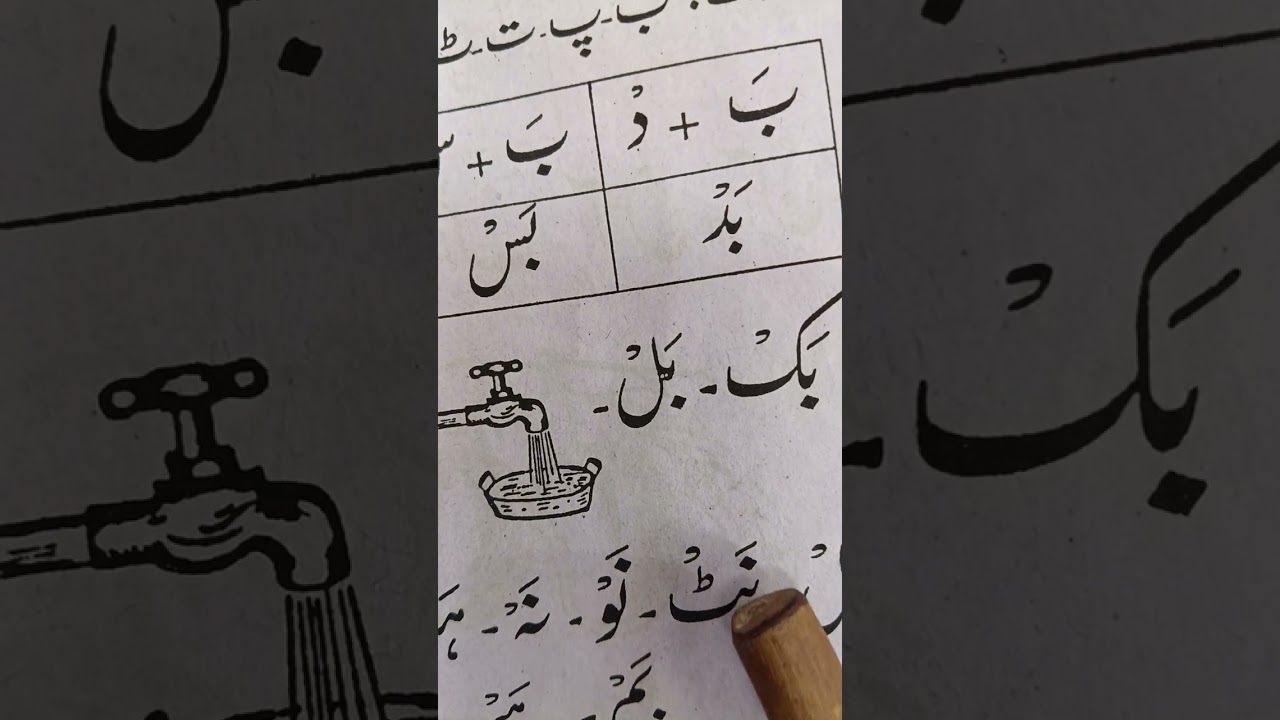 ب۔ پ۔ ت۔ ٹ
بَ + دْ
بَ +
بَدْ
بَسْ
بَکْ۔ بَلْ۔
نَٹْ۔ نَوْ۔ نَہْ۔
بَمْ۔